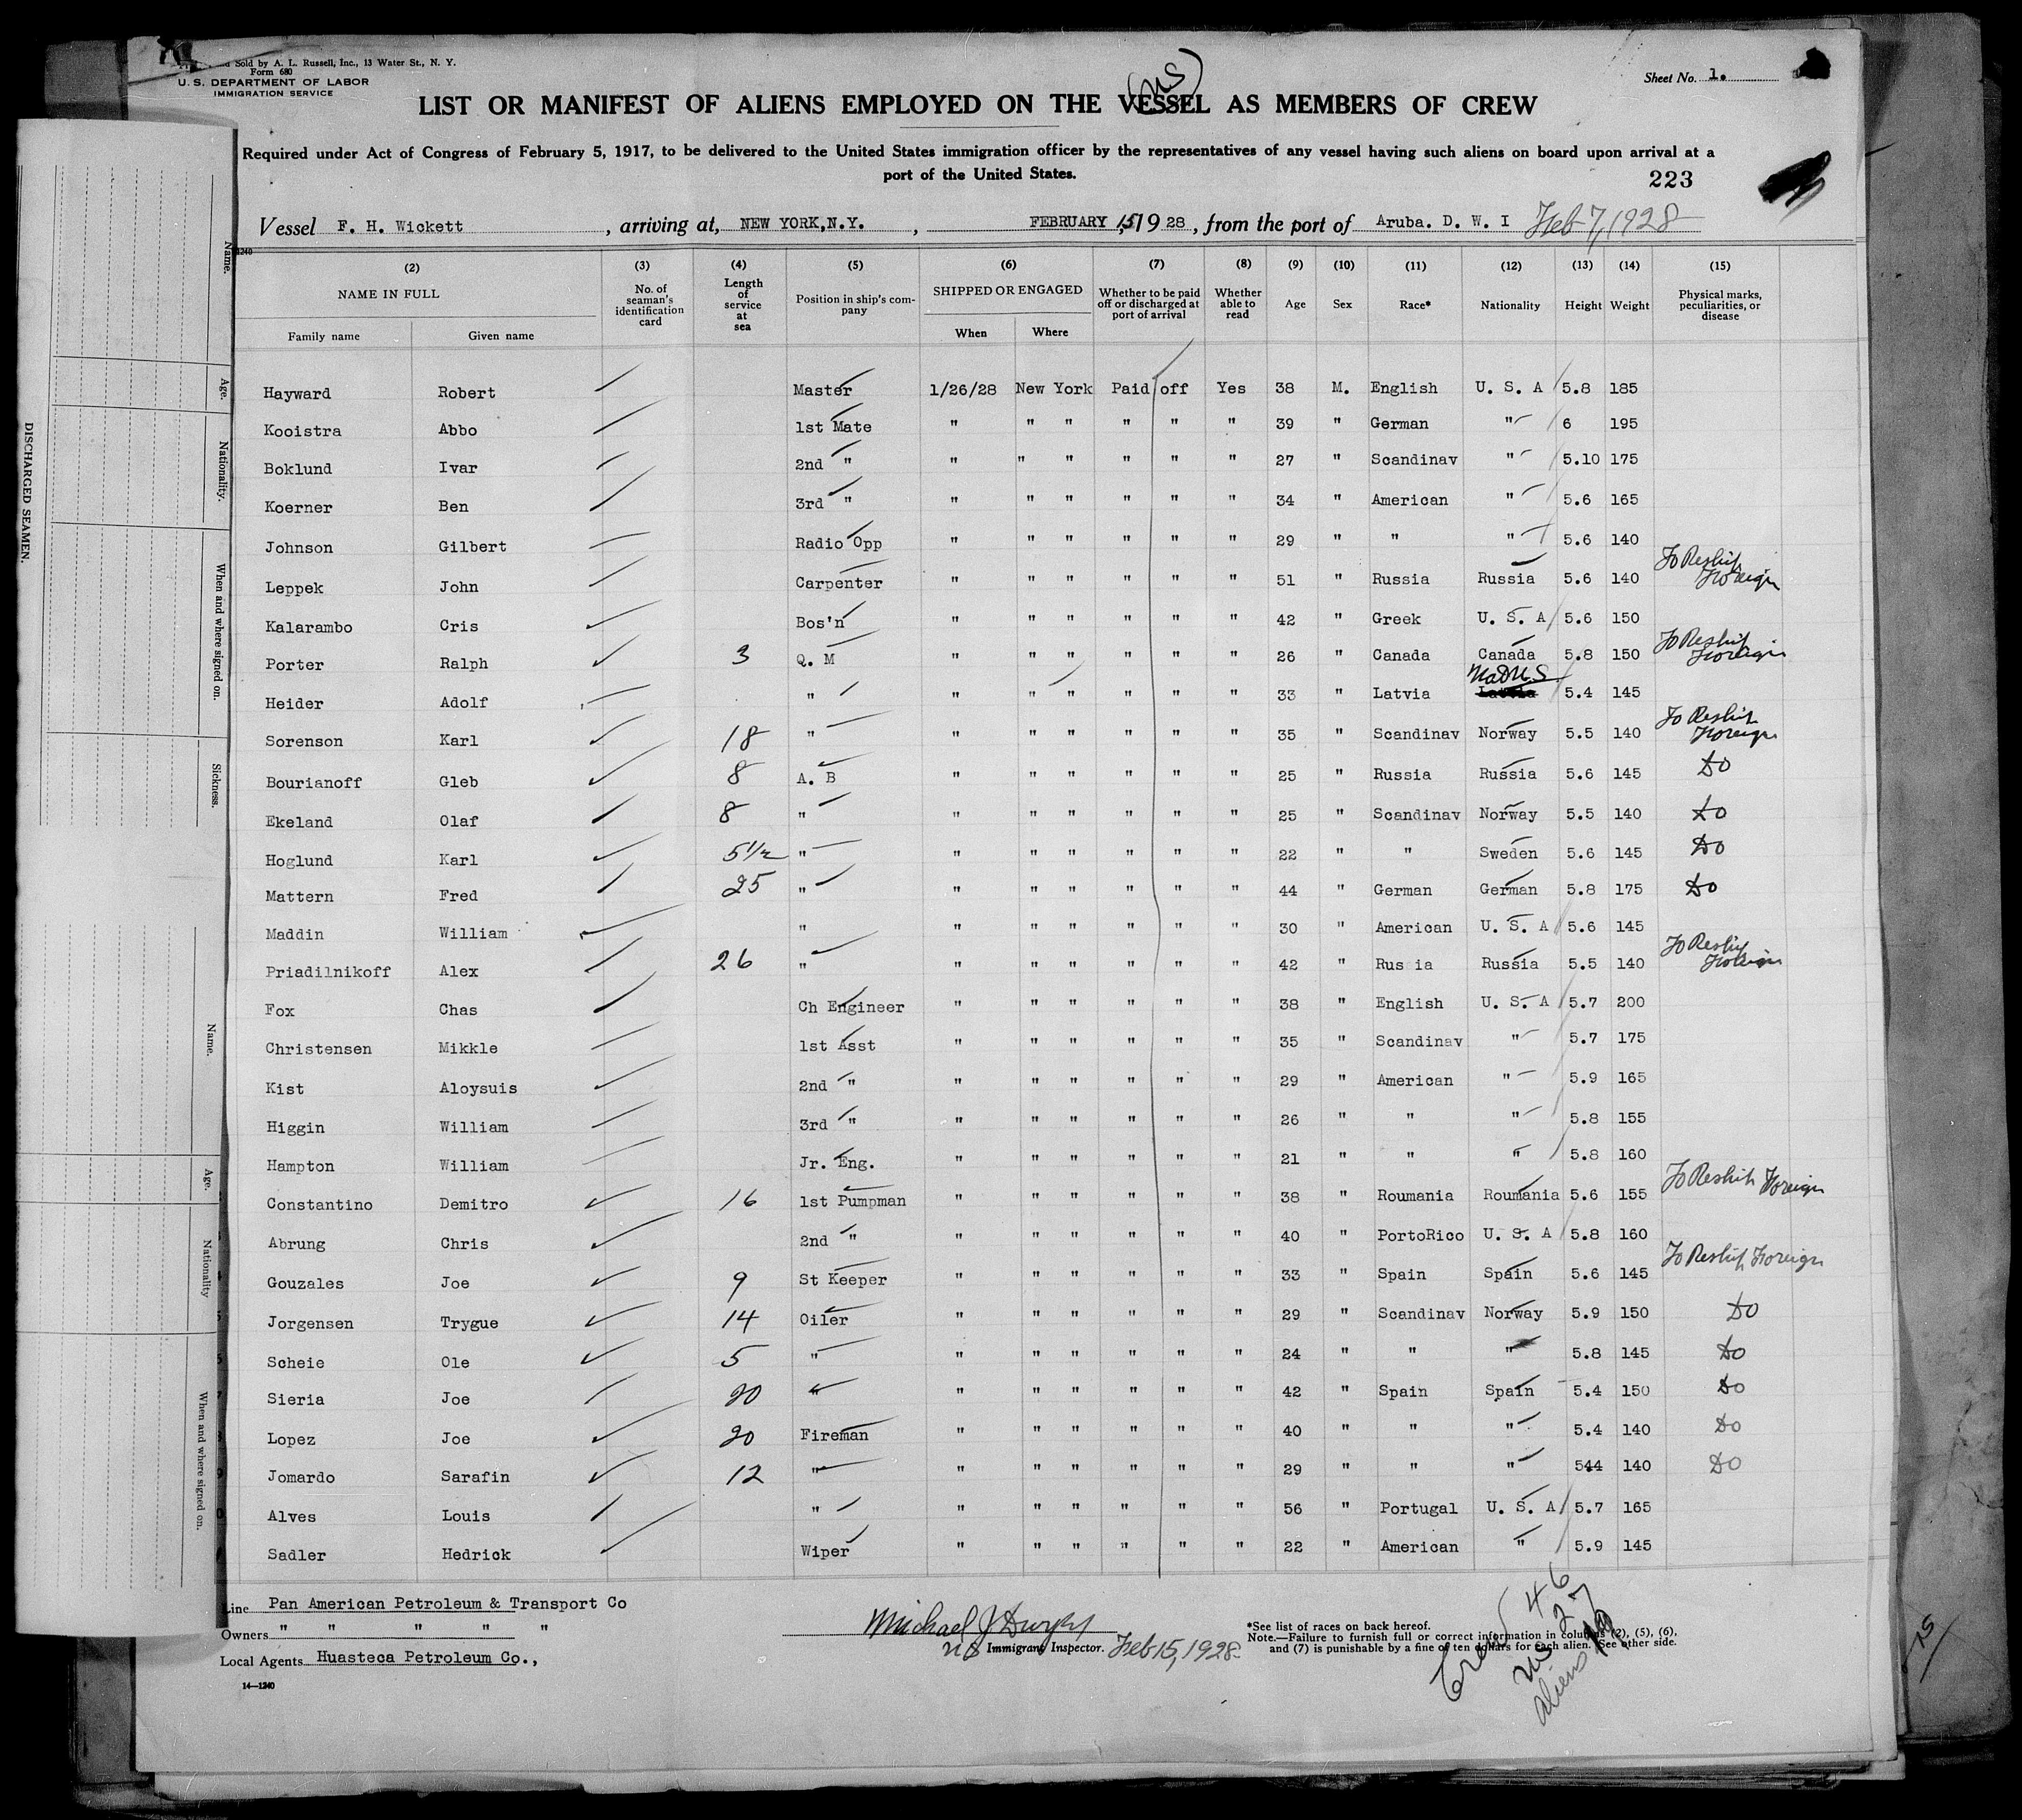 nd Sold by A. L. Russell, Inc., 13 Water St., N. Y.
Form 680
U. S. DEPARTMENT OF LABOR
IMMIGRATION SERVICE
Sheet No. 1.
(US)
LIST OR MANIFEST OF ALIENS EMPLOYED ON THE VESSEL AS MEMBERS OF CREW
Required under Act of Congress of February 5, 1917, to be delivered to the United States immigration officer by the representatives of any vessel having such aliens on board upon arrival at a
port of the United States.
223
Vessel F. H. Wickett, arriving at, NEW YORK, N.Y., FEBRUARY 15, 1928, from the port of Aruba. D. W. I Feb 7, 1928
(2) (3) (4) (5) (6) (7) (8) (9) (10) (11) (12) (13) (14) (15)
NAME IN FULL
Family name Given name
No. of seaman's identification card
Length of service at sea
Position in ship's company
SHIPPED OR ENGAGED
When Where
Whether to be paid off or discharged at port of arrival
Whether able to read
Age Sex Race* Nationality Height Weight
Physical marks, peculiarities, or disease
Hayward Robert Master 1/26/28 New York Paid off Yes 38 M. English U. S. A 5.8 185
Kooistra Abbo 1st Mate " " " " " " 39 " German " 6 195
Boklund Ivar 2nd " " " " " " " 27 " Scandinav " 5.10 175
Koerner Ben 3rd " " " " " " " 34 " American " 5.6 165
Johnson Gilbert Radio Opp " " " " " " 29 " " " 5.6 140
Leppek John Carpenter " " " " " " 51 " Russia Russia 5.6 140 To Reship Foreign
Kalarambo Cris Bos'n " " " " " " 42 " Greek U. S. A 5.6 150
Porter Ralph 3 Q. M " " " " " " 26 " Canada Canada 5.8 150 To Reship Foreign
Heider Adolf " " " " " " " 33 " Latvia Latvia 5.4 145
Sorenson Karl 18 " " " " " " " 35 " Scandinav Norway 5.5 140 To Reship Foreign
Bourianoff Gleb 8 A. B " " " " " " 25 " Russia Russia 5.6 145 Do
Ekeland Olaf 8 " " " " " " " 25 " Scandinav Norway 5.5 140 Do
Hoglund Karl 5 1/2 " " " " " " " 22 " " Sweden 5.6 145 Do
Mattern Fred 25 " " " " " " " 44 " German German 5.8 175 Do
Maddin William " " " " " " " 30 " American U. S. A 5.6 145
Priadilnikoff Alex 26 " " " " " " " 42 " Rus ia Russia 5.5 140 To Reship Foreign
Fox Chas Ch Engineer " " " " " " 38 " English U. S. A 5.7 200
Christensen Mikkle 1st Asst " " " " " " 35 " Scandinav " 5.7 175
Kist Aloysuis 2nd " " " " " " " 29 " American " 5.9 165
Higgin William 3rd " " " " " " " 26 " " " 5.8 155
Hampton William Jr. Eng. " " " " " " 21 " " " 5.8 160
Constantino Demitro 16 1st Pumpman " " " " " " 38 " Roumania Roumania 5.6 155 To Reship Foreign
Abrung Chris 2nd " " " " " " " 40 " PortoRico U. S. A 5.8 160
Gouzales Joe 9 St Keeper " " " " " " 33 " Spain Spain 5.6 145 To Reship Foreign
Jorgensen Trygue 14 Oiler " " " " " " 29 " Scandinav Norway 5.9 150 Do
Scheie Ole 5 " " " " " " " 24 " " " 5.8 145 Do
Sieria Joe 20 " " " " " " " 42 " Spain Spain 5.4 150 Do
Lopez Joe 20 Fireman " " " " " " 40 " " " 5.4 140 Do
Jomardo Sarafin 12 " " " " " " " 29 " " " 544 140 Do
Alves Louis " " " " " " " 56 " Portugal U. S. A 5.7 165
Sadler Hedrick Wiper " " " " " " 22 " American " 5.9 145
Line Pan American Petroleum & Transport Co
Owners " " " " "
Local Agents Huasteca Petroleum Co.,
14—1240
Michael J Dwyer
US Immigrant Inspector. Feb 15, 1928
*See list of races on back hereof.
Note.—Failure to furnish full or correct information in columns (2), (5), (6),
and (7) is punishable by a fine of ten dollars for each alien. See other side.
Crew 46
US 27
Aliens 19
DISCHARGED SEAMEN.
Name.
Age.
Nationality.
When and where signed on.
Sickness.
Name.
Age.
Nationality
When and where signed on.